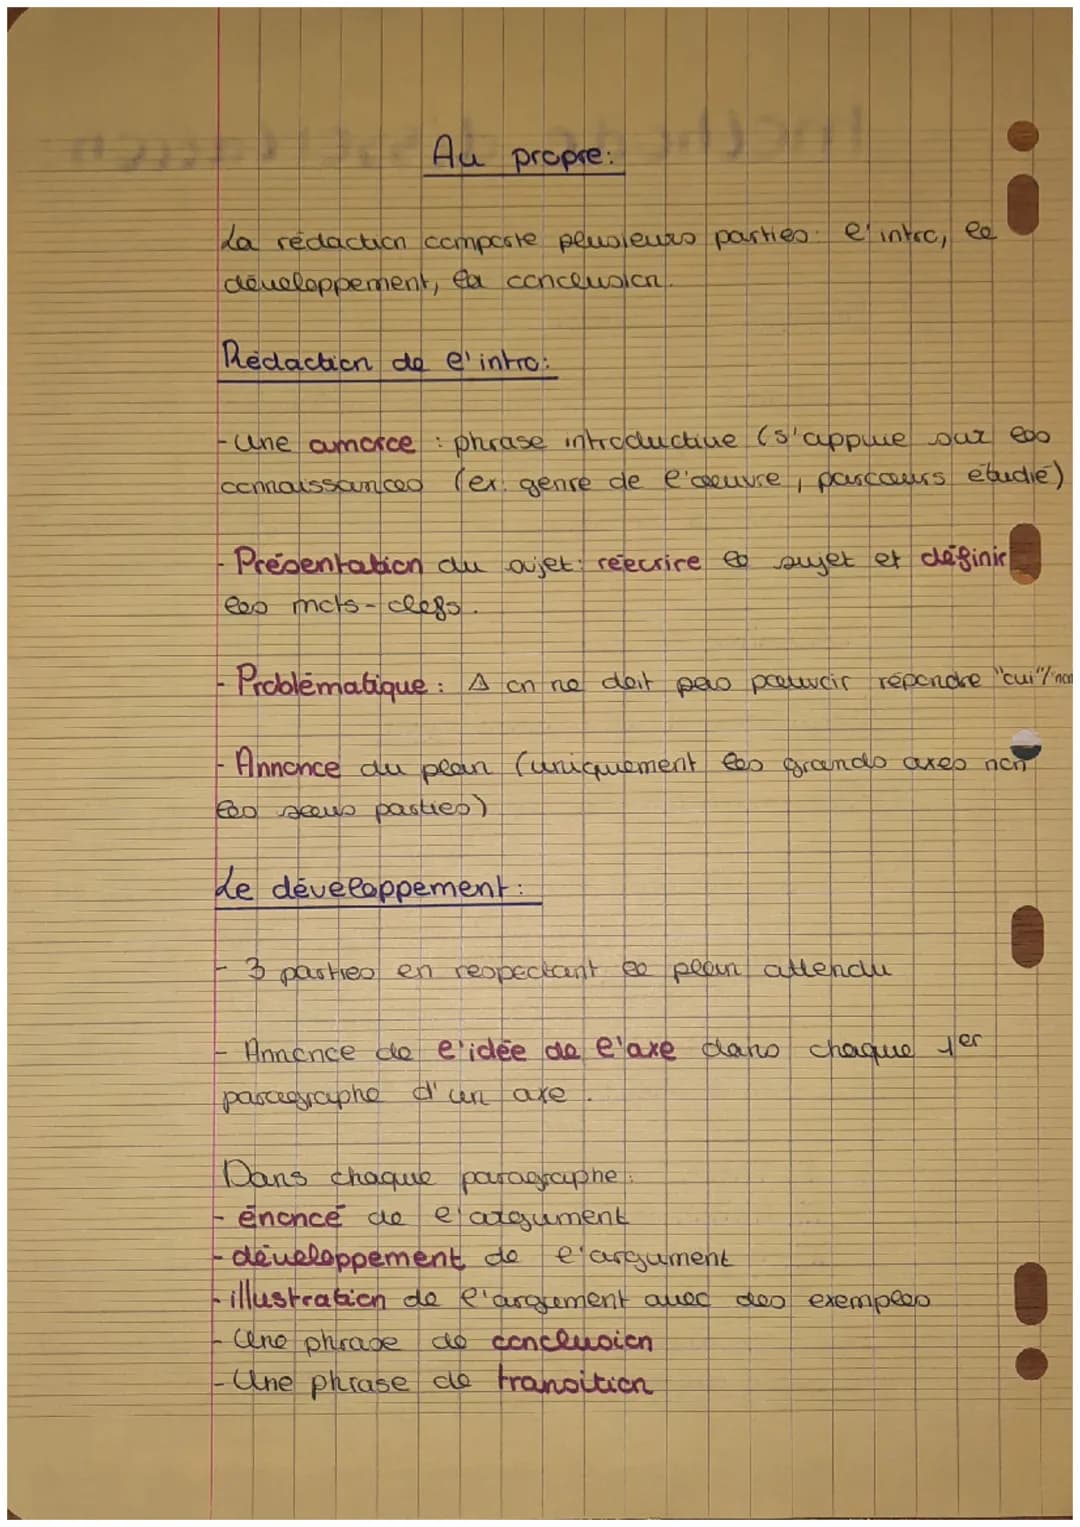 Au propre:
La rédaction comporte plusieurs parties: l'intro, le
développement, la conclusion.
Rédaction de l'intro:
- Une amorce : phrase introductive (s'appuie sur les
connaissances (ex: genre de l'oeuvre, parcours étudié)
- Présentation du sujet: réécrire le sujet et définir
les mots-clefs.
- Problématique : ⚠ on ne doit pas pouvoir répondre "oui"/"non
- Annonce du plan (uniquement les grands axes non
les sous parties)
Le développement:
- 3 parties en respectant le plan attendu
- Annonce de l'idée de l'axe dans chaque 1er
paragraphe d'un axe.
Dans chaque paragraphe:
- énoncé de l'argument
- développement de l'argument
- illustration de l'argument avec des exemples
- Une phrase de conclusion
- Une phrase de transition